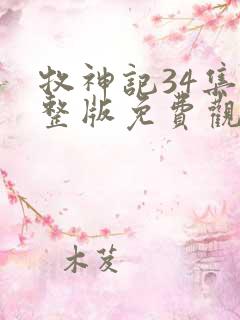 牧神記34集
整版免費觀
木芨